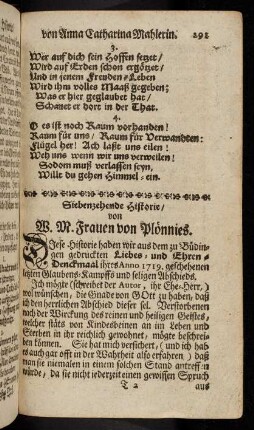 von Anna Catharina Mahlerin. 291
3.
Wer auf dich sein Hoffen setzet/
Wird auf Erden schon ergötzet/
Und in jenem Freuden-Leben
Wird ihm volles Maaß gegeben;
Was er hier geglaubet hat/
Schauet er dort in der That.
4.
O es ist noch Raum vorhanden!
Raum für uns/ Raum für Verwandten:
Flügel her! Ach laßt uns eilen!
Weh uns wenn wir uns verweilen!
Sodom muß verlassen seyn,
Willt du gehen Himmel-ein.
Siebenzehende Historie/
von
W. M. Frauen von Plönnies.
Diese Historie haben wir aus dem zu Büdin-
gen gedruckten Liebes- und Ehren-
Denckmaal ihres Anno 1719. geschehenen
letzten Glaubens-Kampffs und seligen Abschieds.
Ich möchte (schreibet der Autor, ihr Ehe-Herr,)
wol wünschen, die Gnade von GOtt zu haben, daß
den herrlichen Abschied dieser sel. Verstorbenen
nach der Wirckung des reinen und heiligen Geistes,
welcher stäts von Kindesbeinen an im Leben und
Sterben in ihr reichlich gewohnet, mögte beschreib
ben können. Sie hat mich versichert, (und ich hab
es auch gar offt in der Wahrheit also erfahren) daß
man sie niemalen in einem solchen Stand antreffen
würde, da sie nicht jederzeit einen gewissen Spruch
T 2 aus